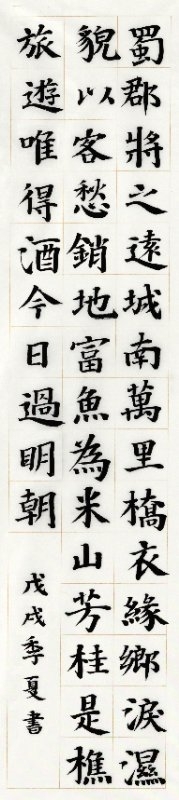 蜀郡將之遠城南萬里橋衣緣鄉淚濕
貌以客愁銷地富魚為米山芳桂是樵
旅遊唯得酒今日過明朝
戊戌季夏書